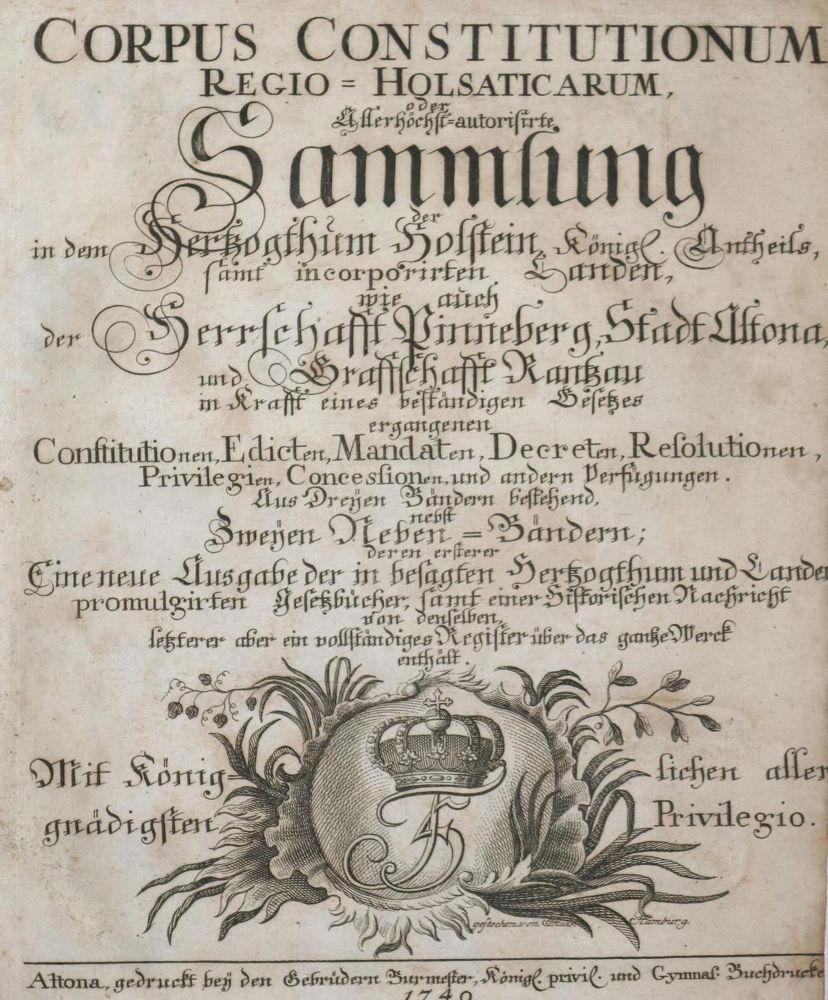 CORPUS CONSTITUTIONUM
REGIO = HOLSATICARUM,
oder
Allerhöchst=autorisirte
Sammlung
der
in dem Hertzogthum Holstein, Königl. Antheils,
samt incorporirten Landen,
wie auch
der Herrschafft Pinneberg, Stadt Altona,
und Graffschafft Rantzau
in Krafft eines beständigen Gesetzes
ergangenen
Constitutionen, Edicten, Mandaten, Decreten, Resolutionen,
Privilegien, Concessionen, und andern Verfügungen.
Aus Dreyen Bändern bestehend,
nebst
Zweyen Neben = Bändern;
deren ersterer
Eine neue Ausgabe der in besagten Hertzogthum und Lande
promulgirten Gesetzbücher, samt einer Historischen Nachricht
von denselben,
letzterer aber ein vollständiges Register über das gantze Werck
enthält.
Mit König= lichen aller
gnädigsten Privilegio.
gestochen von Hamburg.
Altona, gedruckt bey den Gebrüdern Burmester, Königl. privil. und Gymnas. Buchdrucke
1749